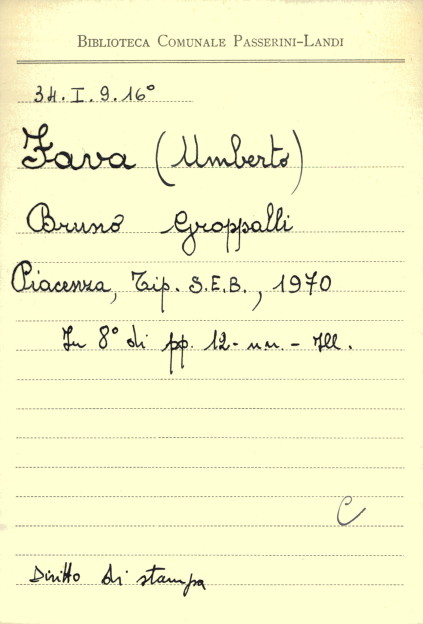 BIBLIOTECA COMUNALE PASSERINI-LANDI
34.I.9.16°
Fava (Umberto)
Bruno Groppalli
Piacenza, Tip. S.E.B., 1970
In 8° di pp. 12-nn.-Ill.
C
Diritto di stampa